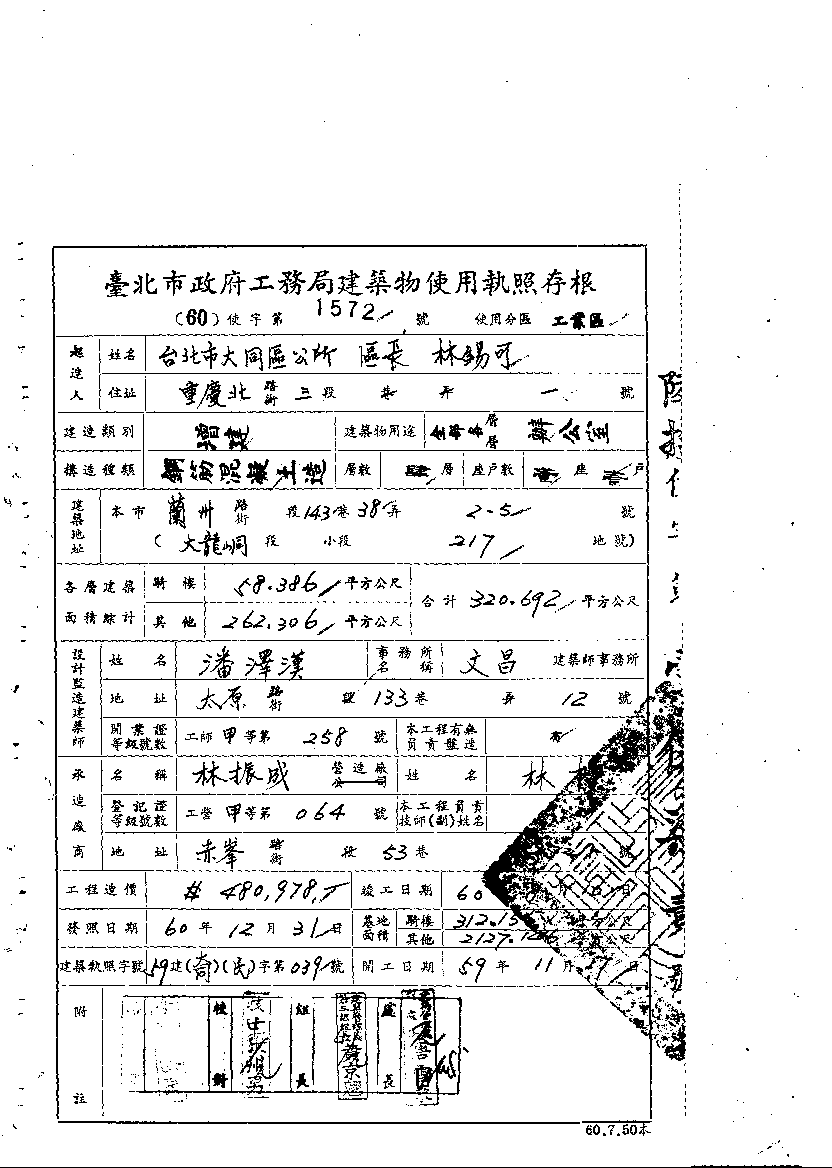 臺北市政府工務局建築物使用執照存根
(60)使字第 1572 號 使用分區 工業區
起造人 姓名 台北市大同區公所 區長 林錫可
住址 重慶北 路街 三 段 巷 弄 一 號
建造類別 增建 建築物用途 全部各層層 辦公室
構造種類 鋼筋混凝土造 層數 層 座戶數 座 戶
建築地址 本市 蘭州 路街 段 143 巷 38 弄 2-5 號
(大龍峒 段 小段 217 地號)
各層建築面積綜計 騎樓 58.386 平方公尺 合計 320.692 平方公尺
其他 262.306 平方公尺
設計監造建築師 姓名 潘澤漢 事務所名稱 文昌 建築師事務所
地址 太原 路街 段 133 巷 弄 12 號
開業證等級號數 工師甲等第 258 號 本工程有無負責監造 有
承造廠商 名稱 林振成 營造廠公司 姓名 林
登記證等級號數 工營甲等第 064 號 本工程負責技師(副)姓名
地址 赤峯 路街 段 53 巷 號
工程造價 480,978 竣工日期 60
發照日期 60 年 12 月 31 日 基地面積 騎樓 312.15 平方公尺
其他 2127. 平方公尺
建築執照字號 59 建( )( )字第 039 號 開工日期 59 年 11 月 日
附註
組長 處長
60.7.50本